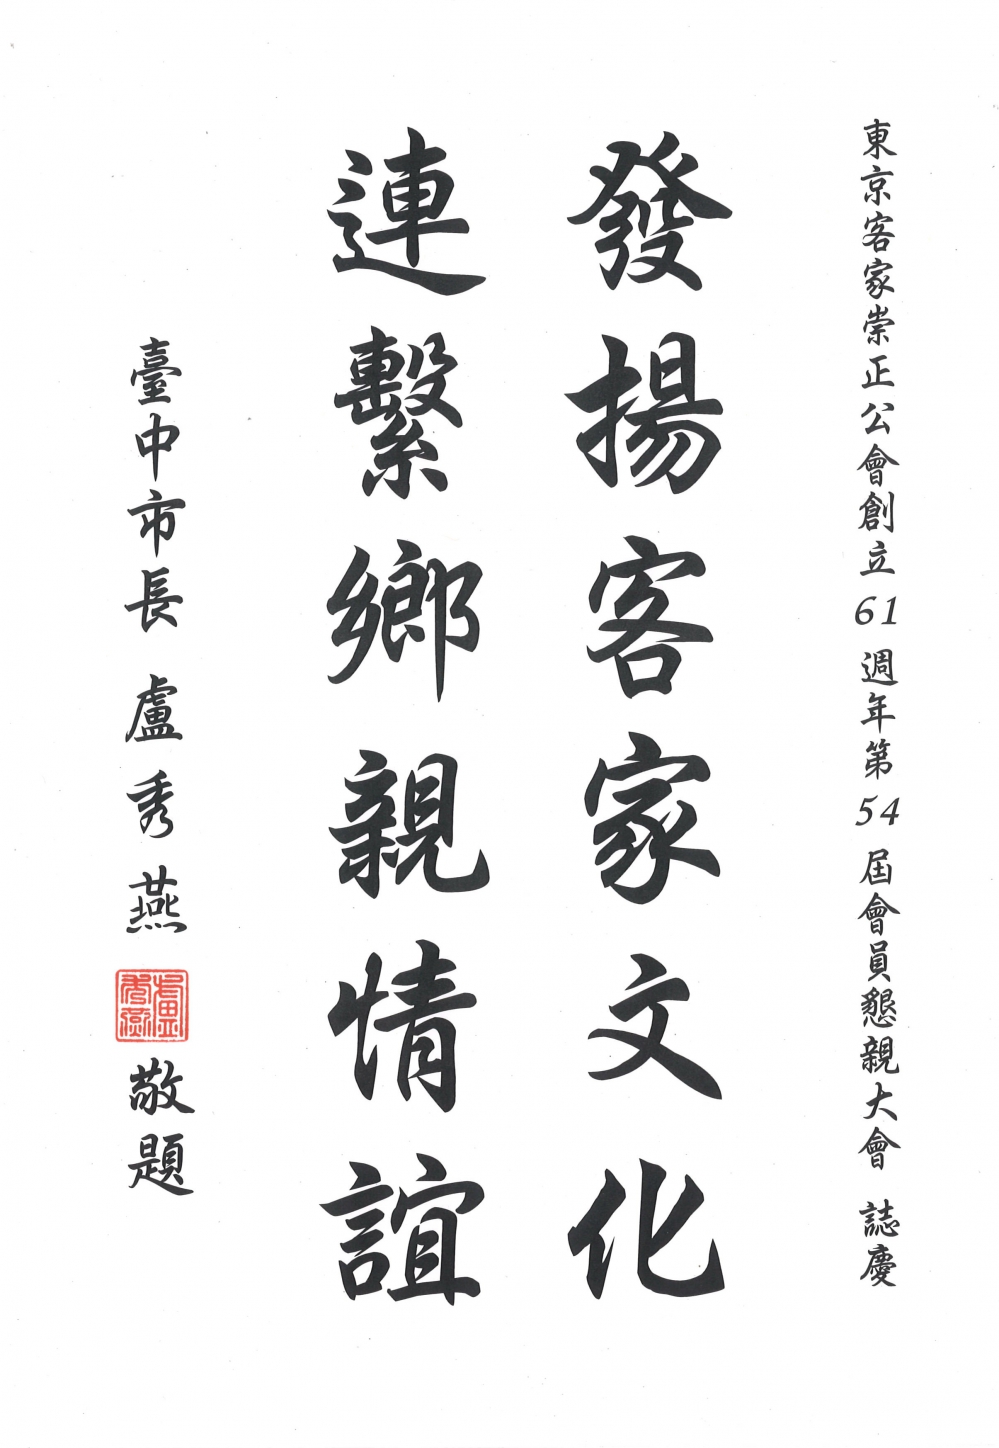 東京客家崇正公會創立61週年第54屆會員懇親大會 誌慶
發揚客家文化
連繫鄉親情誼
臺中市長 盧秀燕 敬題
盧秀燕